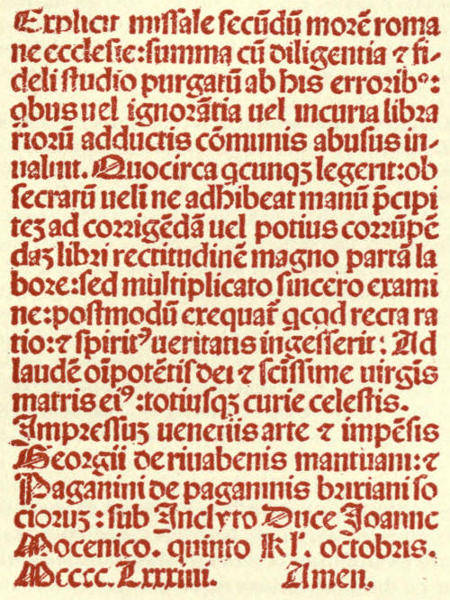 Explicit missale secūdū morē roma
ne ecclesie: summa cū diligentia ⁊ fi-
deli studio purgatū ab his erroribꝰ:
qbus uel ignorātia uel incuria libra
riorū adductis cōmunis abusus in-
ualuit. Quocirca qcunqꝫ legerit: ob
secratū ueli ne adhibeat manū p̄cipi
teꝫ ad corrigēdā uel potius corrūpē
daꝫ libri rectitudinē magno partā la
bore: sed multiplicato sincero exami
ne: postmodū exequat̄ qcqd recta ra
tio: ⁊ spiritꝰ ueritatis ingesserit: Ad
laudē oīpotētis dei ⁊ sc̄issime uirgīs
matris eiꝰ: totiusqꝫ curie celestis.
Impressuꝫ uenetiis arte ⁊ impēsis
Georgii de riuabenis mantuani: ⁊
Paganini de paganinis brixiani so
cioruꝫ: sub Inclyto Duce Joanne
Mocenico. quinto kl̄. octobris.
Mcccc. Lxxxiiii. Amen.